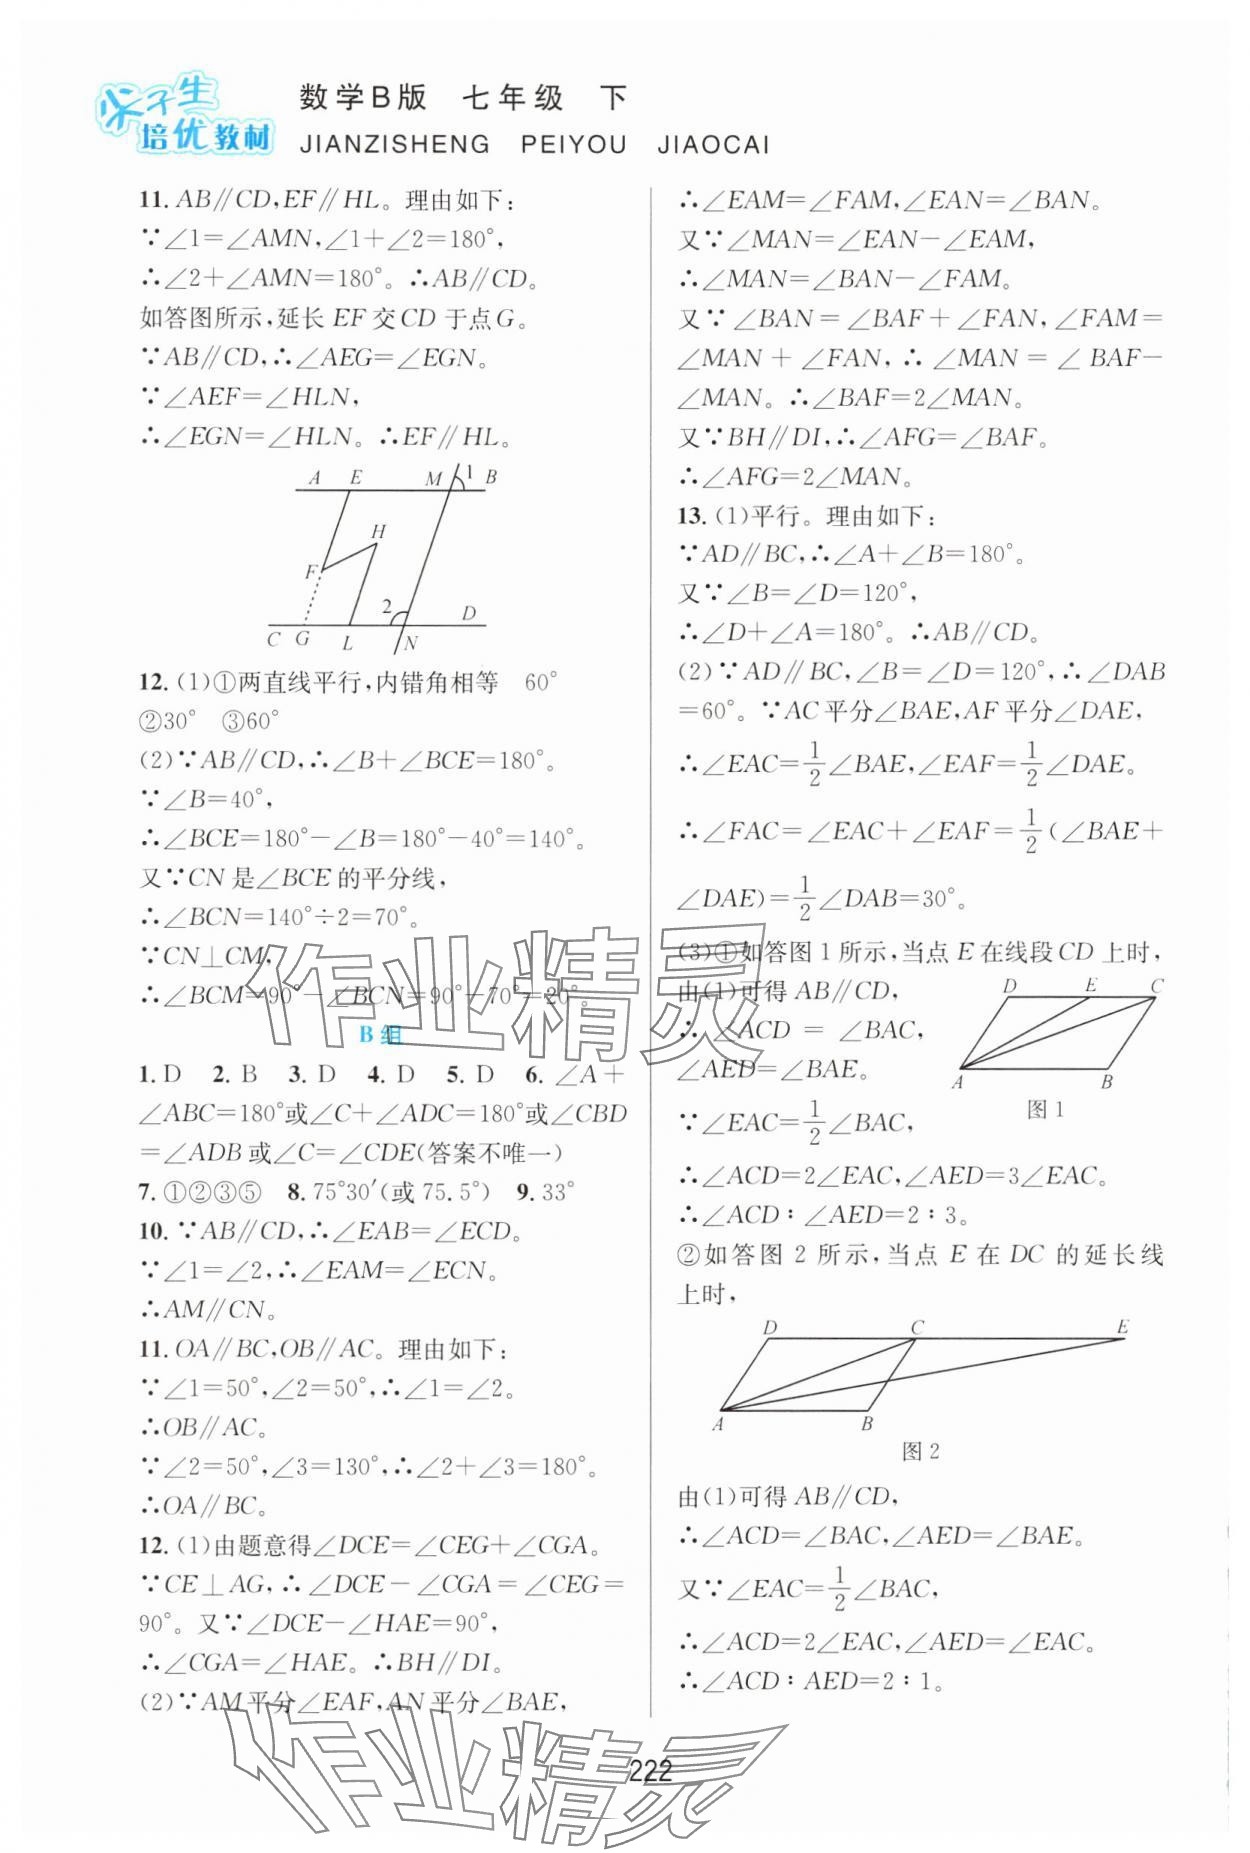 尖子生
培优教材
数学B版 七年级 下
JIANZISHENG PEIYOU JIAOCAI
11. AB∥CD,EF∥HL。理由如下:
∵∠1=∠AMN,∠1+∠2=180°,
∴∠2+∠AMN=180°。∴AB∥CD。
如答图所示,延长 EF 交 CD 于点 G。
∵AB∥CD,∴∠AEG=∠EGN。
∵∠AEF=∠HLN,
∴∠EGN=∠HLN。∴EF∥HL。
A E M 1 B
H
F
2 D
C G L N
12. (1)①两直线平行,内错角相等 60°
②30° ③60°
(2)∵AB∥CD,∴∠B+∠BCE=180°。
∵∠B=40°,
∴∠BCE=180°-∠B=180°-40°=140°。
又∵CN 是∠BCE 的平分线,
∴∠BCN=140°÷2=70°。
∵CN⊥CM,
∴∠BCM=90°-∠BCN=90°-70°=20°。
B 组
1. D 2. B 3. D 4. D 5. D 6. ∠A+
∠ABC=180°或∠C+∠ADC=180°或∠CBD
=∠ADB 或∠C=∠CDE(答案不唯一)
7. ①②③⑤ 8. 75°30′(或 75.5°) 9. 33°
10. ∵AB∥CD,∴∠EAB=∠ECD。
∵∠1=∠2,∴∠EAM=∠ECN。
∴AM∥CN。
11. OA∥BC,OB∥AC。理由如下:
∵∠1=50°,∠2=50°,∴∠1=∠2。
∴OB∥AC。
∵∠2=50°,∠3=130°,∴∠2+∠3=180°。
∴OA∥BC。
12. (1)由题意得∠DCE=∠CEG+∠CGA。
∵CE⊥AG,∴∠DCE-∠CGA=∠CEG=
90°。又∵∠DCE-∠HAE=90°,
∴∠CGA=∠HAE。∴BH∥DI。
(2)∵AM 平分∠EAF,AN 平分∠BAE,
∴∠EAM=∠FAM,∠EAN=∠BAN。
又∵∠MAN=∠EAN-∠EAM,
∴∠MAN=∠BAN-∠FAM。
又∵∠BAN=∠BAF+∠FAN,∠FAM=
∠MAN+∠FAN,∴∠MAN=∠BAF-
∠MAN。∴∠BAF=2∠MAN。
又∵BH∥DI,∴∠AFG=∠BAF。
∴∠AFG=2∠MAN。
13. (1)平行。理由如下:
∵AD∥BC,∴∠A+∠B=180°。
又∵∠B=∠D=120°,
∴∠D+∠A=180°。∴AB∥CD。
(2)∵AD∥BC,∠B=∠D=120°,∴∠DAB
=60°。∵AC 平分∠BAE,AF 平分∠DAE,
∴∠EAC=1/2∠BAE,∠EAF=1/2∠DAE。
∴∠FAC=∠EAC+∠EAF=1/2(∠BAE+
∠DAE)=1/2∠DAB=30°。
(3)①如答图 1 所示,当点 E 在线段 CD 上时,
由(1)可得 AB∥CD,
∴∠ACD=∠BAC,
∠AED=∠BAE。
D E C
A B
图 1
∵∠EAC=1/2∠BAC,
∴∠ACD=2∠EAC,∠AED=3∠EAC。
∴∠ACD∶∠AED=2∶3。
②如答图 2 所示,当点 E 在 DC 的延长线
上时,
D C E
A B
图 2
由(1)可得 AB∥CD,
∴∠ACD=∠BAC,∠AED=∠BAE。
又∵∠EAC=1/2∠BAC,
∴∠ACD=2∠EAC,∠AED=∠EAC。
∴∠ACD∶AED=2∶1。
作业精灵
作业精灵
222